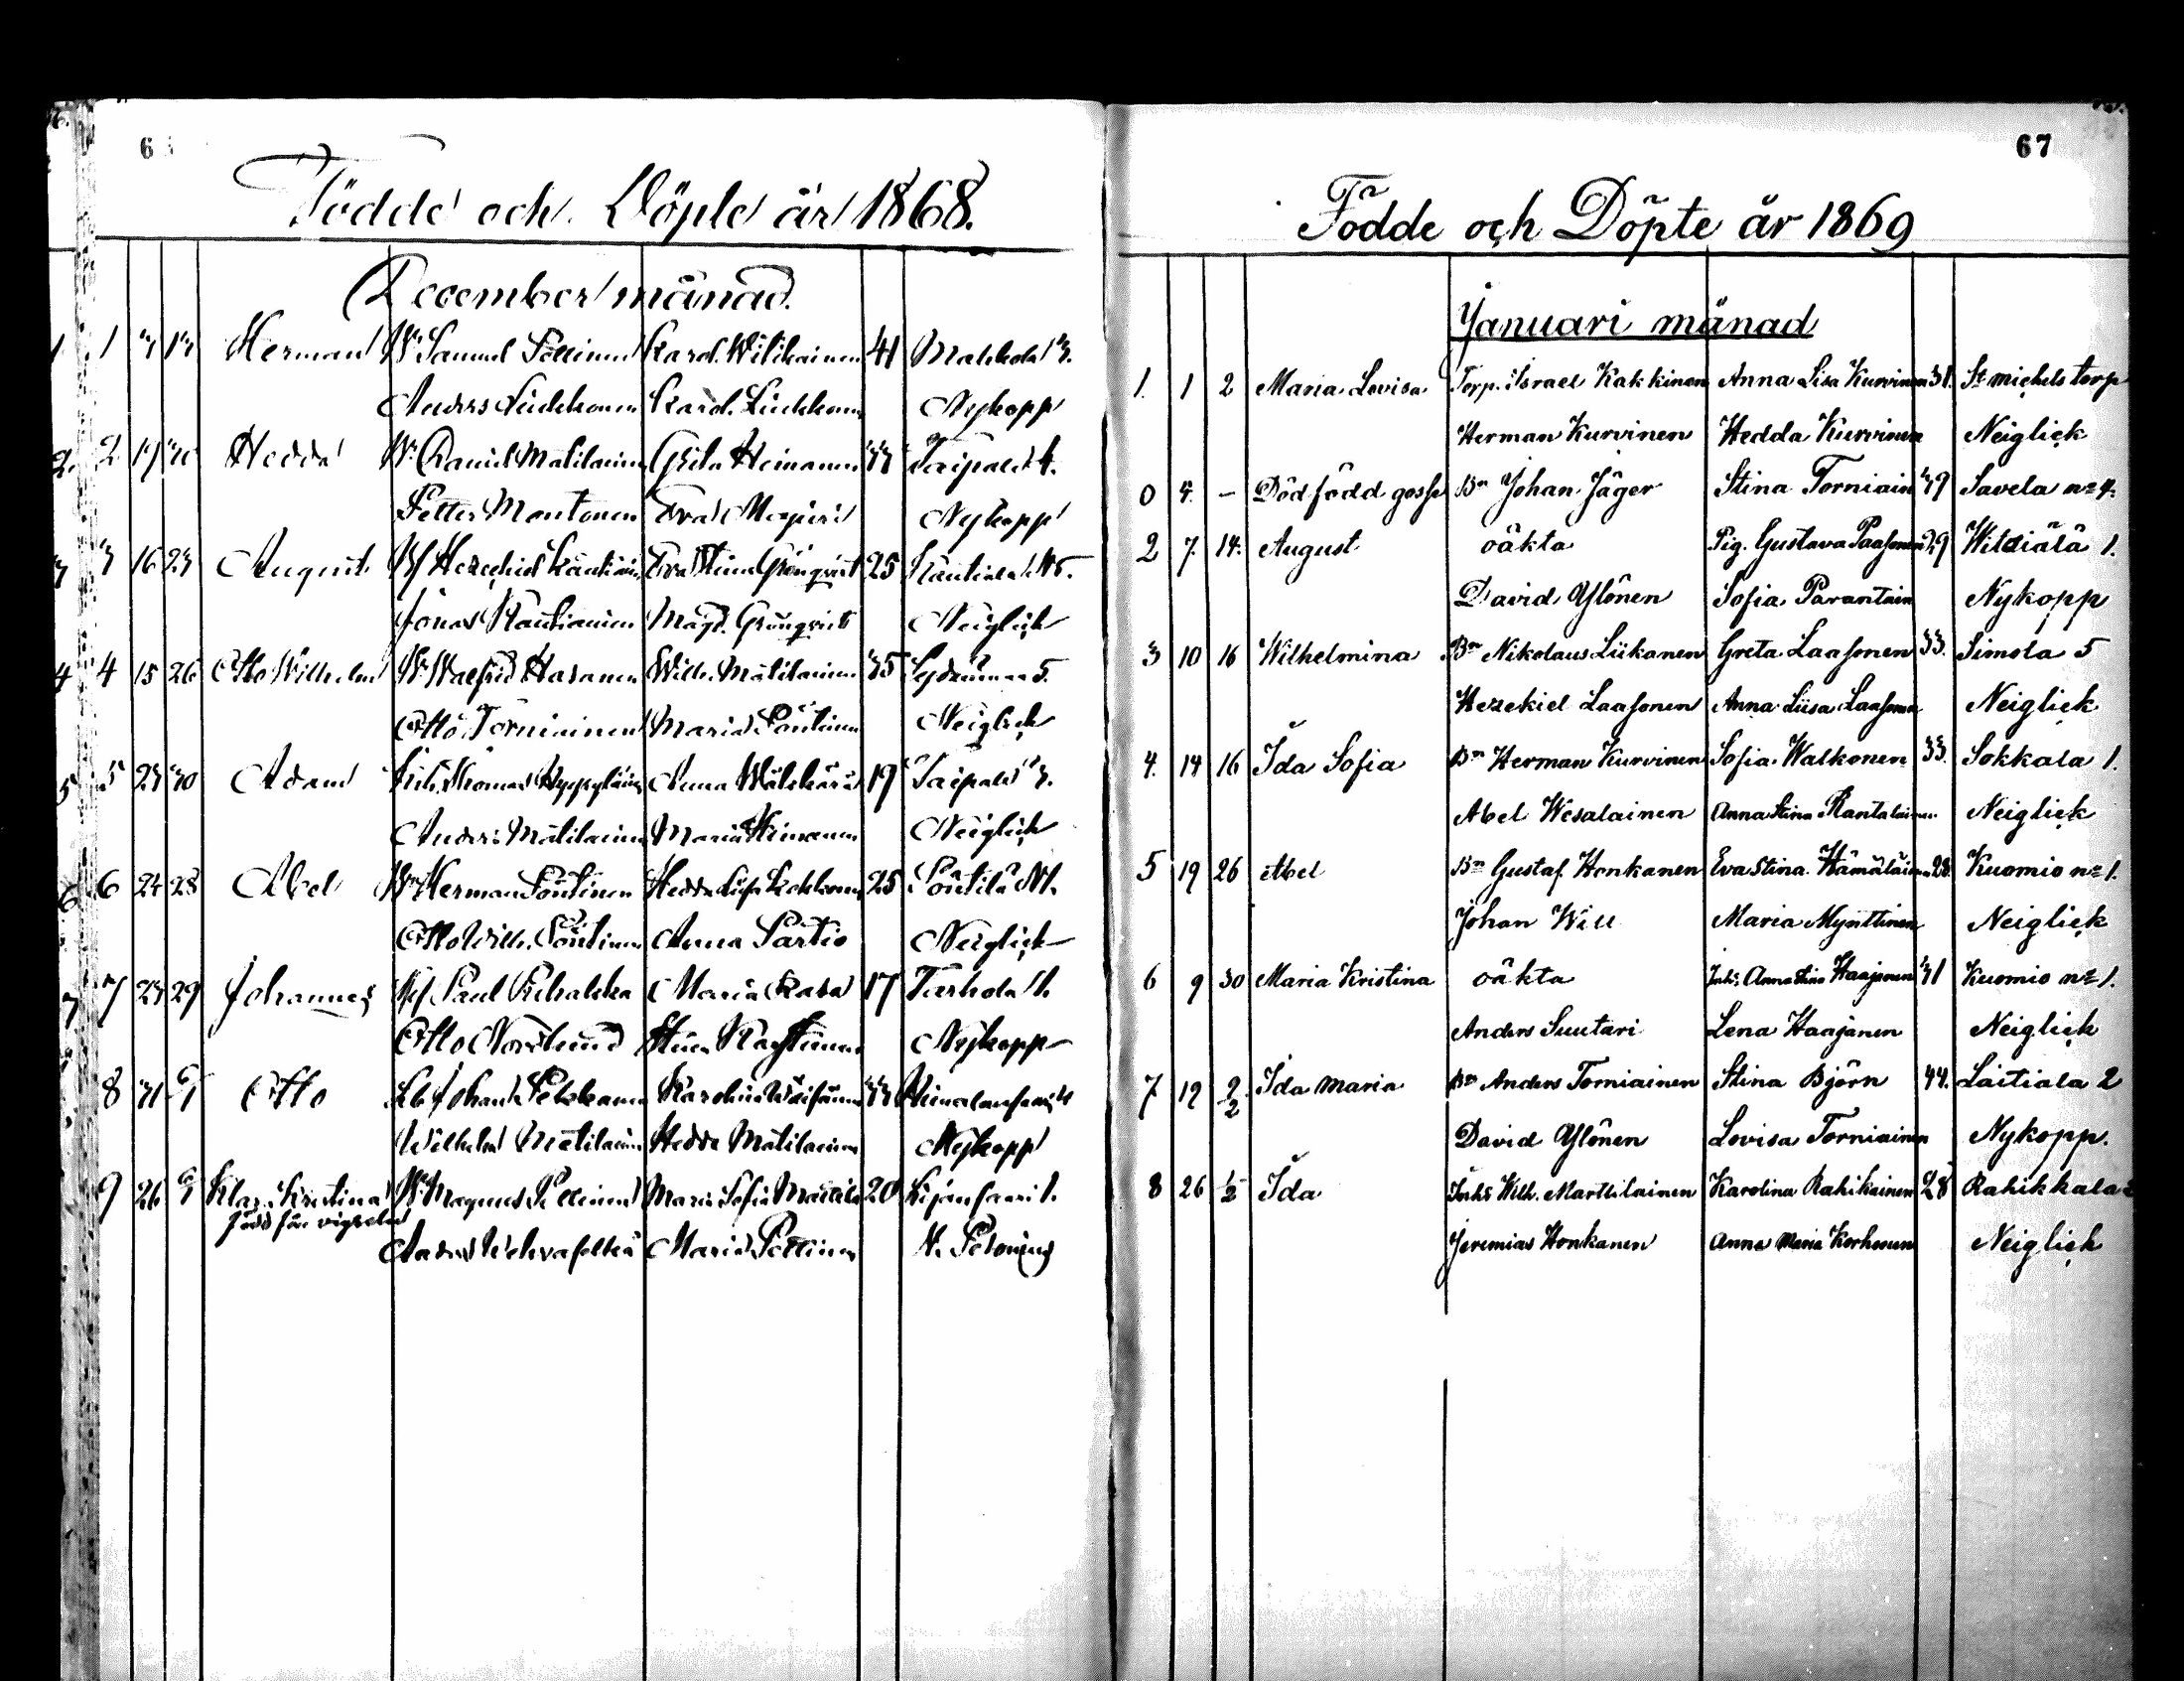 6
Födde och Döpte år 1868.
December månad.
1 1 3 13 Herman Bn Samuel Pellinen Karol. Wilikainen 41 Mattola 3.
Anders Liukkonen Karol. Liukkonen Nykopp
2. 2 19 20 Hedda Bn Daniel Matilainen Greta Heimonen 33 Taipale 4.
Petter Montonen Eva Nykopp
3 3 16 23 August Hezechiel Eva Stina Grönqvist 25 Rautiala N5.
Jonas Rautiainen Magd. Grönqvist Neiglick
4 4 15 26 Otto Wilhelm Bn Walfrid Hasanen Wilh. Matilainen 35 5.
Otto Torniainen Maria Pöntinen Neiglick
5 5 23 30 Adam Thomas Anna 19 Taipale 3.
Anders Matilainen Maria Heimonen Neiglick
6 6 24 28 Abel Bn Herman Pöntinen Hedda Lisa 25 Pöntilä N1.
Otto Wilh. Pöntinen Anna Partio Neiglick
7 7 23 29 Johannes Paul Maria 17 1.
Otto Nordlund Stina Nykopp
8 31 6/1 Otto Johan Karolina 33
Wilhelm Matilainen Hedda Matilainen Nykopp
9 26 6/1 Klar. Kristina Bn Magnus Pellinen Maria Sofia 20 1.
född före vigseln
Maria Pellinen
67
Födde och Döpte år 1869
Januari månad
1. 1 2 Maria Lovisa Torp. Israel Kakkinen Anna Lisa Kurvinen 31. St michels torp
Herman Kurvinen Hedda Kurvinen Neiglick
0 4. — Dödfödd gosse Bn Johan Jäger Stina Torniain 39 Savela no 4.
2 7. 14. August oäkta Pig. Gustava Paasonen 29 Wilaiälä 1.
David Ylönen Sofia Parantain Nykopp
3 10 16 Wilhelmina Bn Nikolaus Liikanen Greta Laasonen 33. Simola 5
Hezekiel Laasonen Anna Liisa Laasonen Neiglick
4. 14 16 Ida Sofia Bn Herman Kurvinen Sofia Walkonen 33. Sokkala 1.
Abel Wesalainen Anna Stina Rantalainen Neiglick
5 19 26 Abel Bn Gustaf Honkanen Eva Stina Hämäläinen 28. Kuomio no 1.
Johan Will Maria Mynttinen Neiglick
6 9 30 Maria Kristina oäkta Inh: Anna Stina Haajanen 31 Kuomio no 1.
Anders Suutari Lena Haajanen Neiglick
7 12 2/2 Ida Maria Bn Anders Torniainen Stina Björn 44. Laitiala 2
David Ylönen Lovisa Torniainen Nykopp.
8 26 1/2 Ida Inhs Wilh. Marttilainen Karolina Rahikainen 28 Rahikkala 2
Jeremias Honkanen Anna Maria Korhonen Neiglick